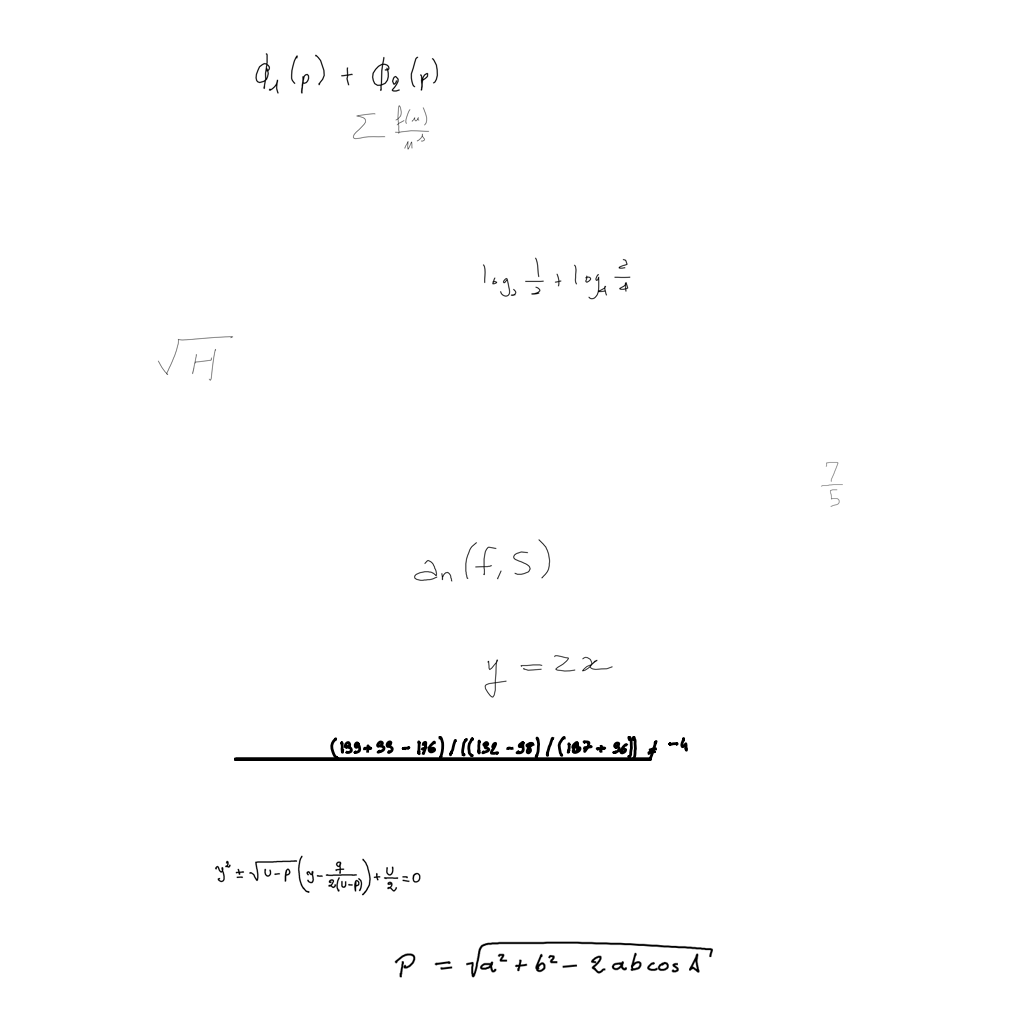 ϕ₁(p) + ϕ₂(p)
∑ f(n)/n^s
log₂ 1/2 + log₄ 2/4
√H
7/5
aₙ(f, S)
y = 2x
(199+99-176)/((132-98)/(187+96)) ≠ -4
y² ± √(u-p) (y - q/(2(u-p))) + u/2 = 0
P = √(a² + b² - 2ab cos A)